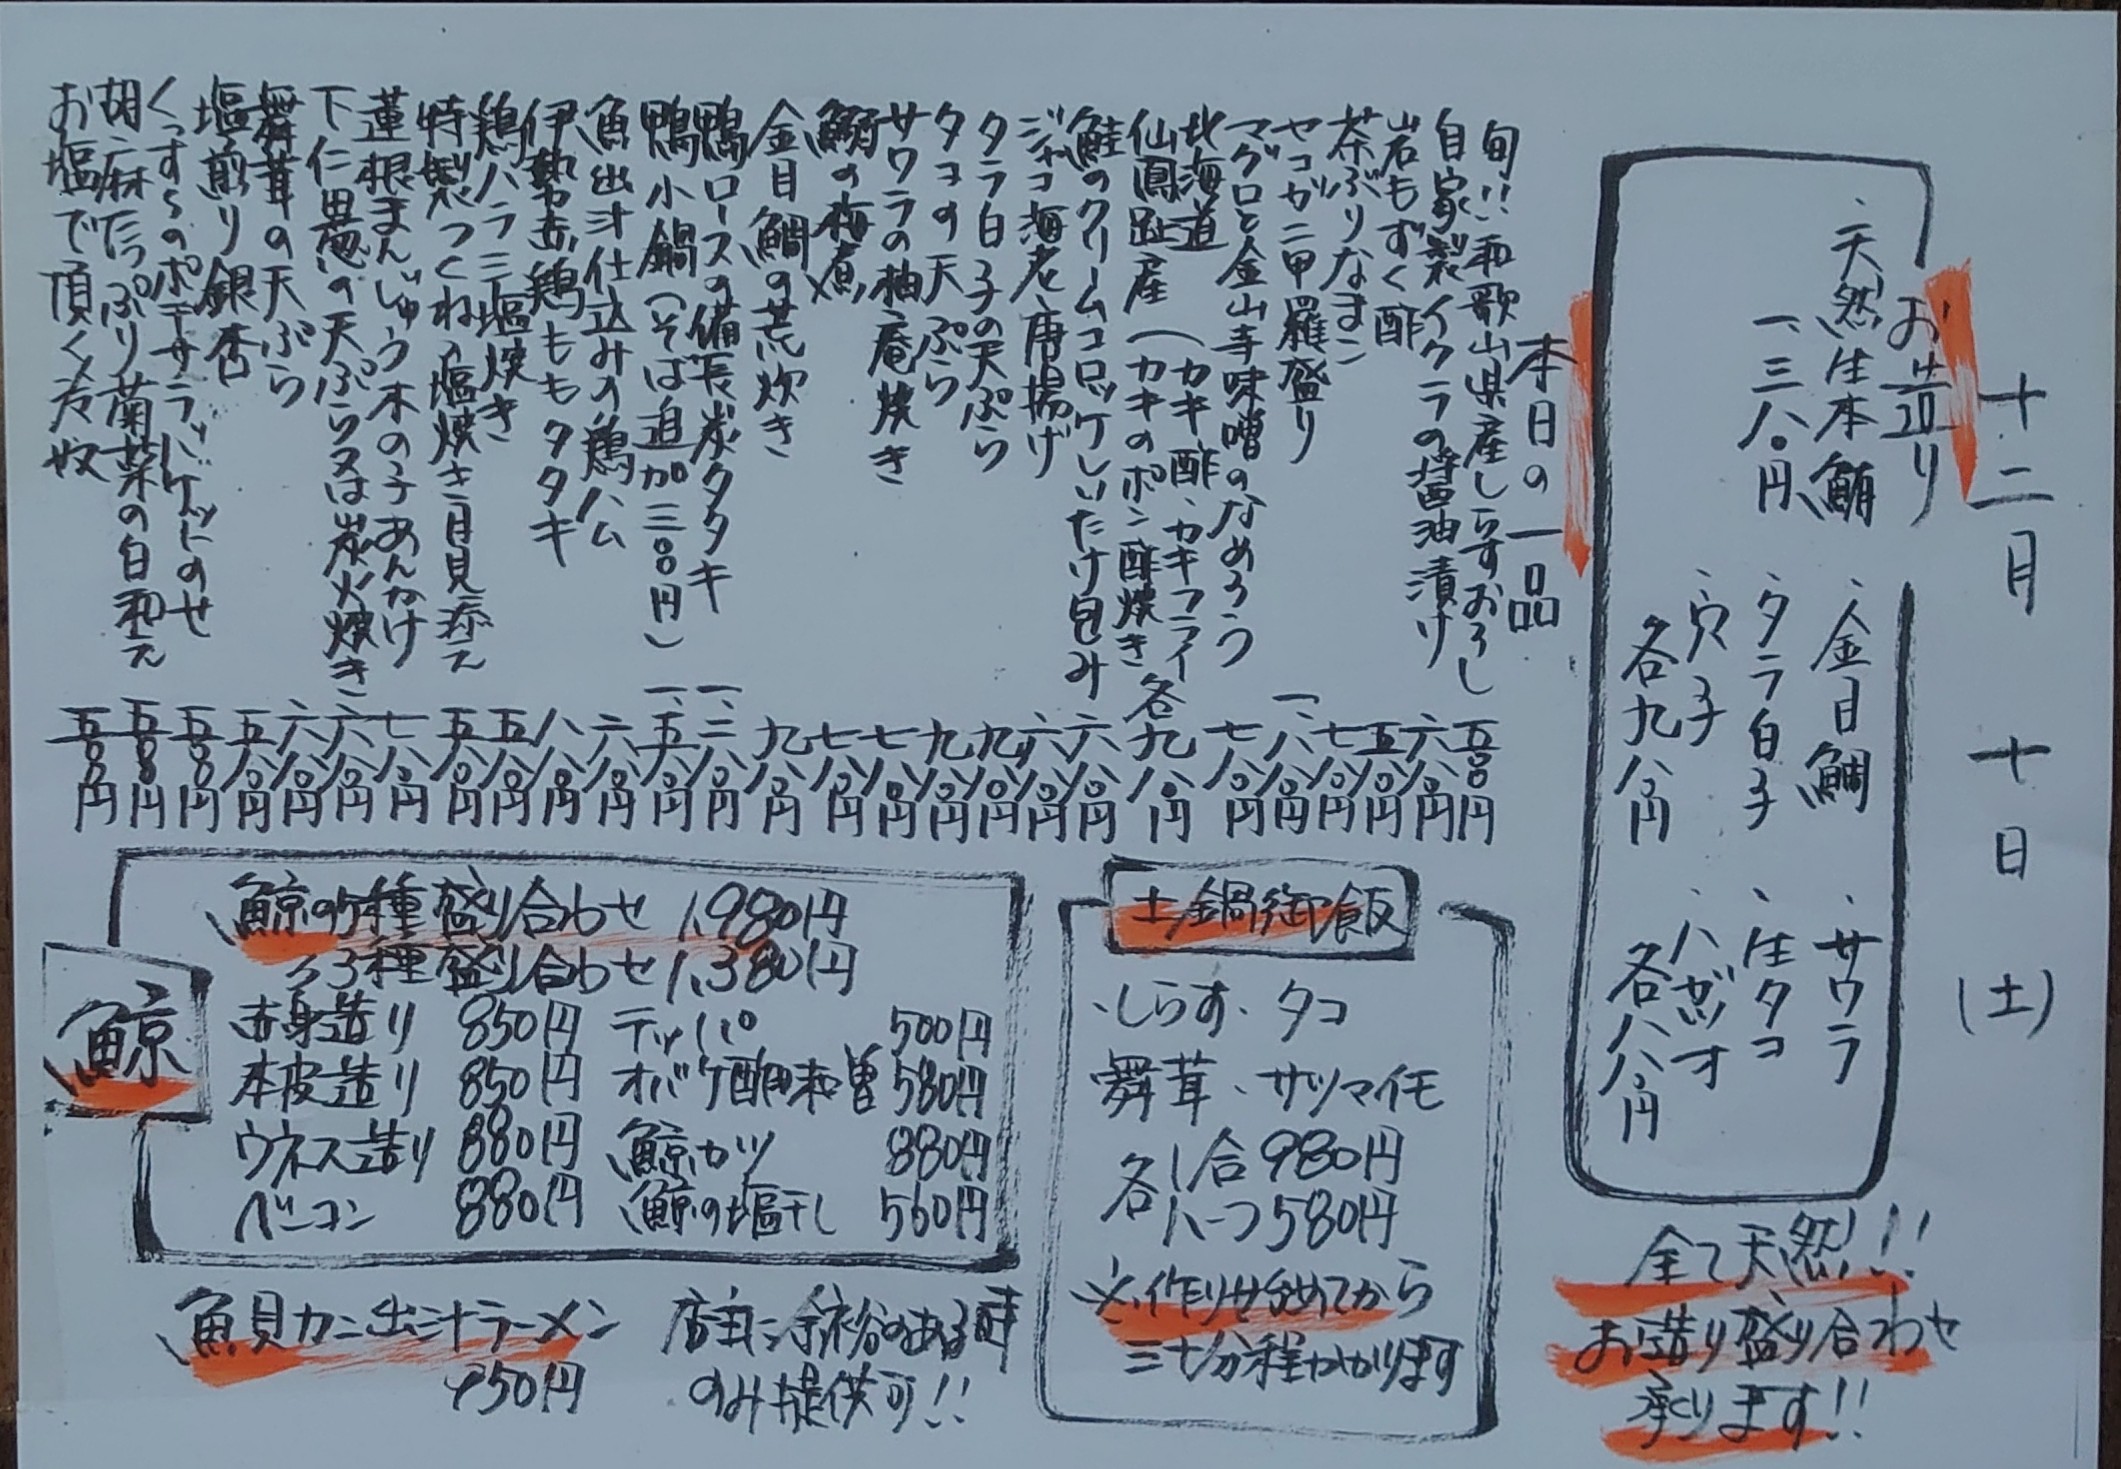 十二月 十日 (土)
お造り
・天然生本鮪
一、三八〇円
・金目鯛
・タラ白子
・穴子
各九八〇円
・サワラ
・生タコ
・ハガツオ
各八八〇円
全て天然!!
お造り盛り合わせ
承ります!!
本日の一品
旬!!和歌山県産しらすおろし 五〇〇円
自家製イクラの醤油漬け 六八〇円
岩もずく酢 五八〇円
茶ぶりなまこ 七八〇円
セコガニ甲羅盛り 一、八八〇円
マグロと金山寺味噌のなめろう 七八〇円
北海道 (カキ酢、カキフライ
仙鳳趾産 (カキのポン酢焼き 各九八〇円
鮭のクリームコロッケしいたけ包み 六八〇円
ジャコ海老唐揚げ 六八〇円
タラ白子の天ぷら 九八〇円
タコの天ぷら 九八〇円
サワラの柚庵焼き 七八〇円
鰯の梅煮 七八〇円
金目鯛の荒炊き 九八〇円
鴨ロースの備長炭タタキ 一、二八〇円
鴨小鍋(そば追加三〇〇円) 一、五八〇円
魚出汁仕込みの鶏ハム 六八〇円
伊勢赤鶏ももタタキ 八八〇円
鶏ハラミ塩焼き 五八〇円
特製つくね塩焼き 月見添え 五八〇円
蓮根まんじゅう木の子あんかけ 七八〇円
下仁田葱の天ぷら又は炭火焼き 六八〇円
舞茸の天ぷら 六八〇円
塩煎り銀杏 五八〇円
くっすらのポテサラ、バゲットのせ 五八〇円
胡麻たっぷり菊菜の白和え 五八〇円
お塩で頂く冷奴 五〇〇円
土鍋御飯
・しらす・タコ
・舞茸・サツマイモ
各1合980円
各ハーフ580円
※作り始めてから
三十分程かかります
鯨
鯨の5種盛り合わせ 1,980円
〃3種盛り合わせ 1,380円
赤身造り 850円
本皮造り 850円
ウネス造り 880円
ベーコン 880円
テッパ 500円
オバケ酢味噌 580円
鯨カツ 880円
鯨の塩干し 560円
魚貝カニ出汁ラーメン
950円
店主に余裕のある時
のみ提供可!!